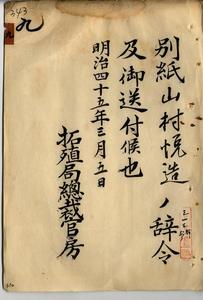 別紙山村悦造ノ辞令
及御送付候也
明治四十五年三月五日
拓殖局總裁官房
九
343
九